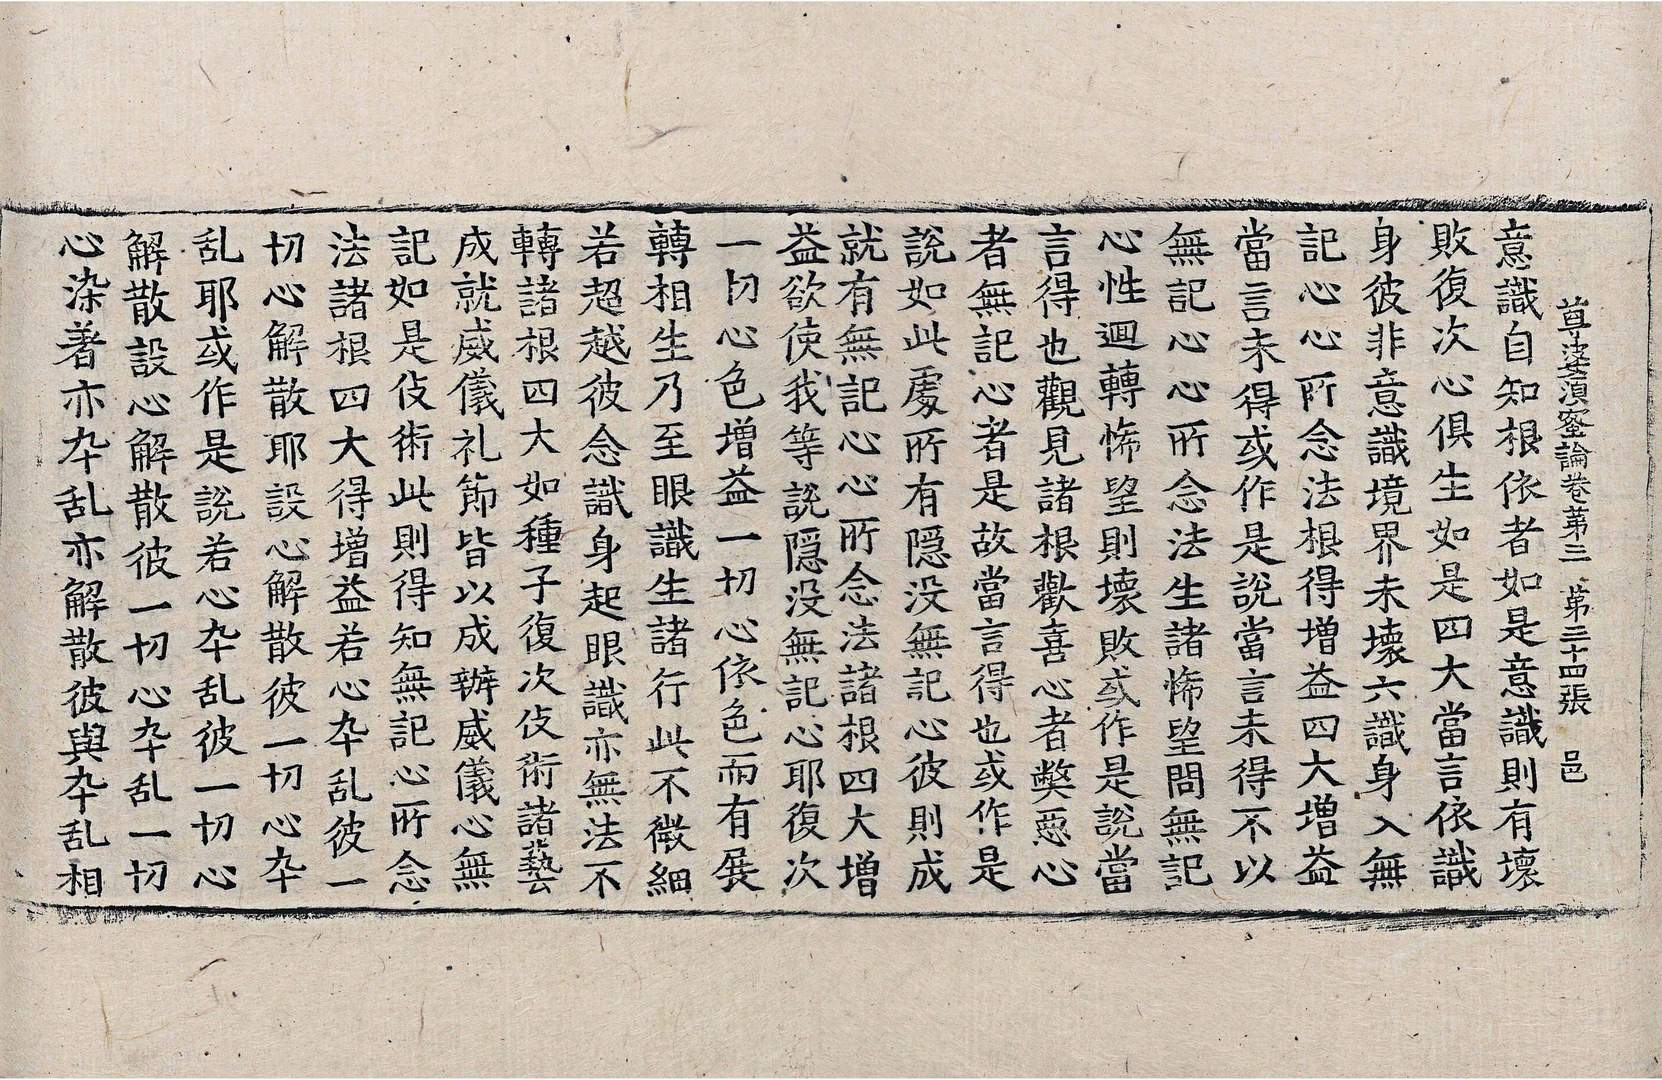 尊婆湏蜜論卷苐三 苐三十四張 邑
意識自知根依者如是意識則有壞
敗復次心俱生如是四大當言依識
身彼非意識境界未壞六識身入無
記心心所念法根得增益四大增益
當言未得或作是說當言未得不以
無記心心所念法生諸悕望問無記
心性迴轉悕望則壞敗或作是說當
言得也觀見諸根歡喜心者獘惡心
者無記心者是故當言得也或作是
說如此處所有隠没無記心彼則成
就有無記心心所念法諸根四大增
益欲使我等說隠没無記心耶復次
一切心色增益一切心依色而有展
轉相生乃至眼識生諸行此不微細
若超越彼念識身起眼識亦無法不
轉諸根四大如種子復次伎術諸藝
成就威儀礼節皆以成辦威儀心無
記如是伎術此則得知無記心所念
法諸根四大得增益若心夲乱彼一
切心解散耶設心解散彼一切心夲
乱耶或作是說若心夲乱彼一切心
解散設心解散彼一切心夲乱一切
心染著亦夲乱亦解散彼與夲乱相